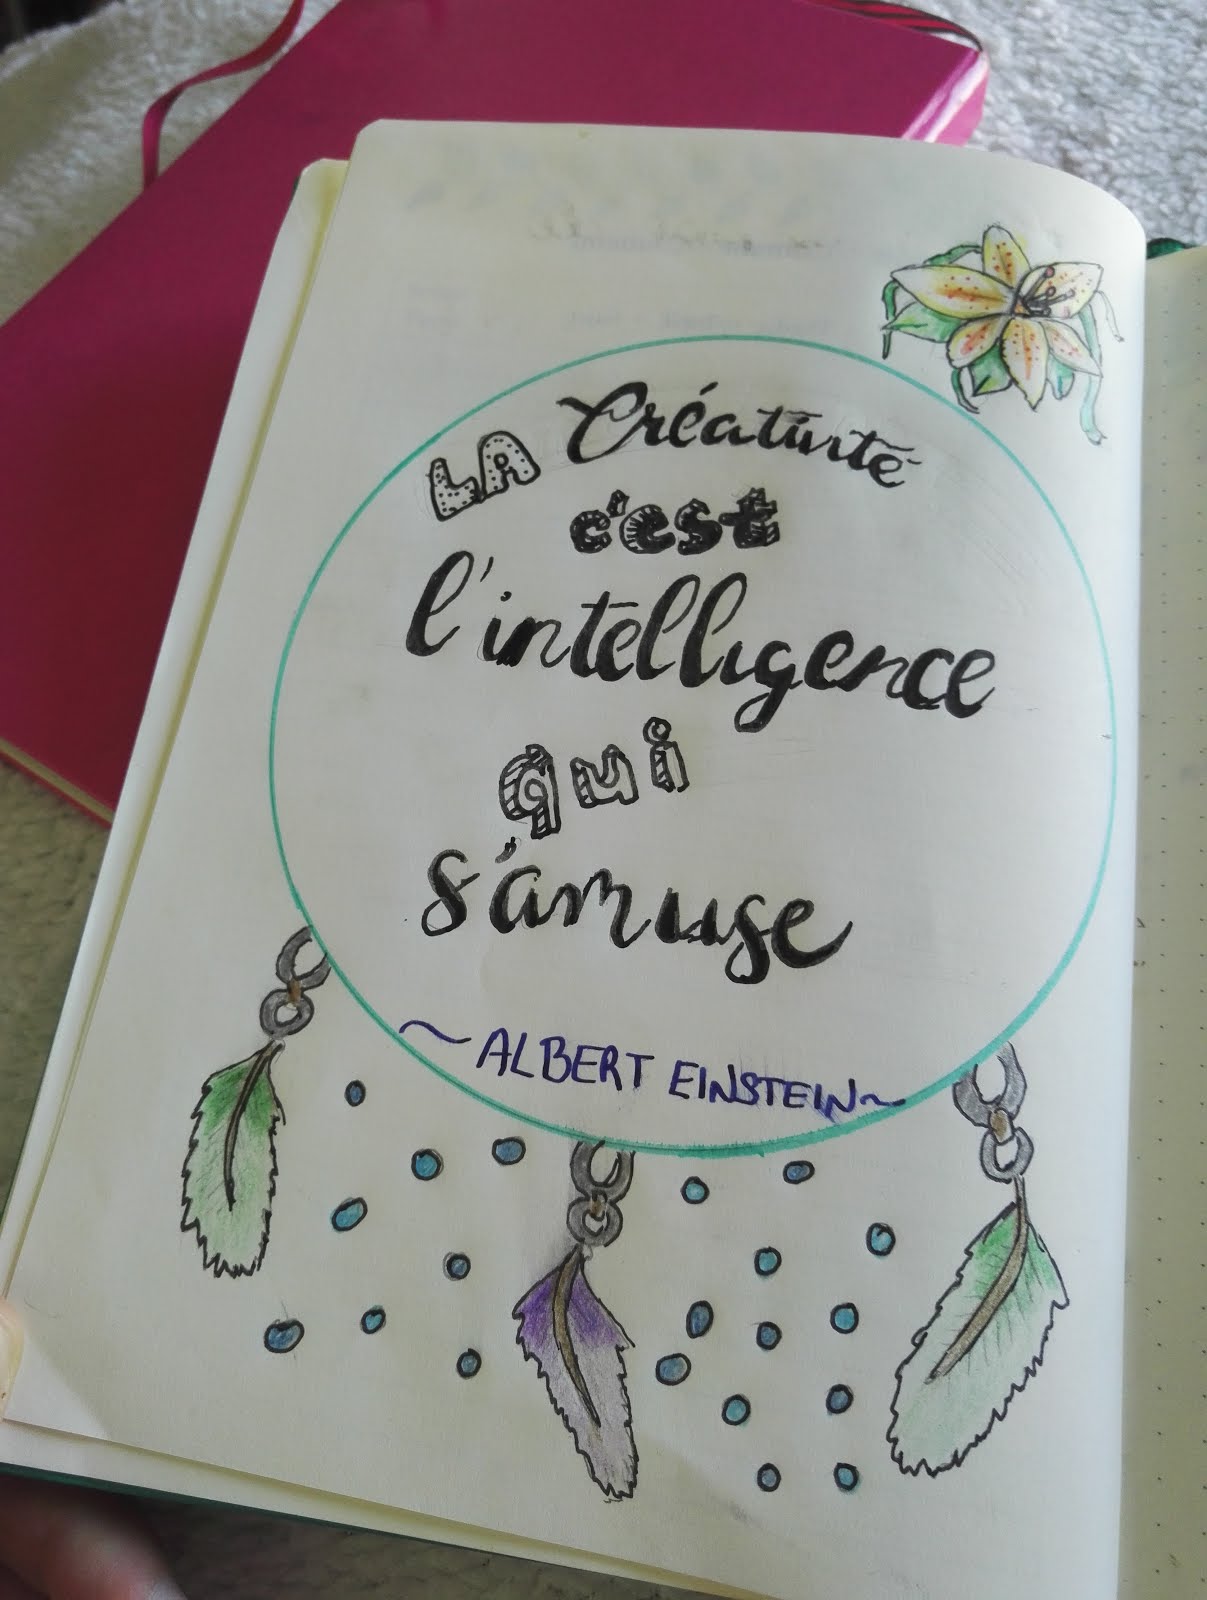 LA Créativité
c'est
l'intelligence
qui
s'amuse
~ ALBERT EINSTEIN ~